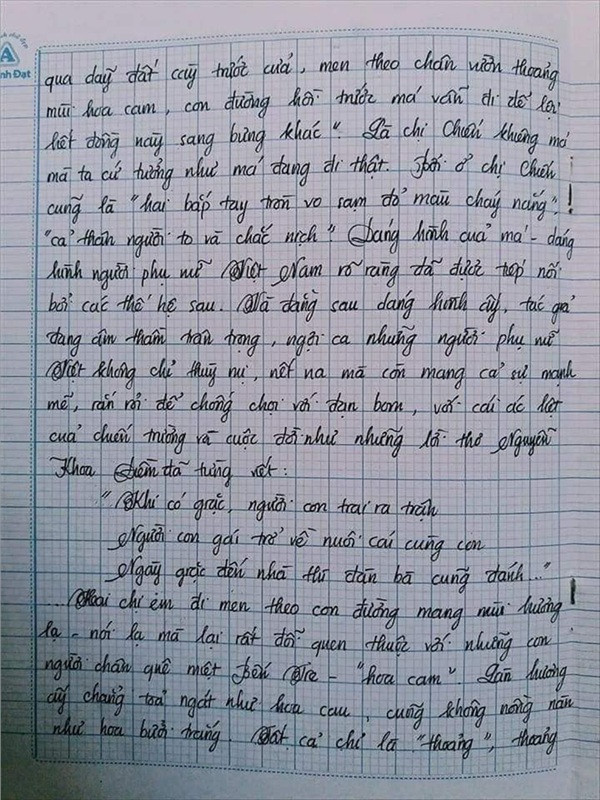 A
nh Đạt
qua dãy đất cày trước cửa, men theo chân vườn thoảng
mùi hoa cam, con đường hồi trước má vẫn đi để lội
hết đồng này sang bưng khác". Là chị Chiến khiêng má
mà ta cứ tưởng như má đang đi thật. Bởi ở chị Chiến
cũng là "hai bắp tay tròn vo sạm đỏ màu cháy nắng",
"cả thân người to và chắc nịch". Dáng hình của má - dáng
hình người phụ nữ Việt Nam rõ ràng đã được tiếp nối
bởi các thế hệ sau. Và đằng sau dáng hình ấy, tác giả
đang âm thầm trân trọng, ngợi ca những người phụ nữ
Việt không chỉ thùy mị, nết na mà còn mang cả sự mạnh
mẽ, rắn rỏi để chống chọi với đạn bom, với cái ác liệt
của chiến trường và cuộc đời như những lời thơ Nguyễn
Khoa Điềm đã từng viết:
"Khi có giặc, người con trai ra trận
Người con gái trở về nuôi cái cùng con
Ngày giặc đến nhà thì đàn bà cũng đánh..."
Hai chị em đi men theo con đường mang mùi hương
lạ - nói lạ mà lại rất đỗi quen thuộc với những con
người chân quê miệt Bến Tre - "hoa cam". Làn hương
ấy chẳng toả ngát như hoa cau, cũng không nồng nàn
như hoa bưởi trắng. Tất cả chỉ là "thoảng", thoảng